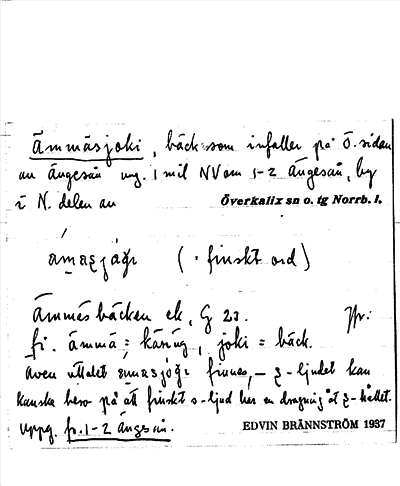 Ämmäsjoki, bäck som infaller på Ö. sidan
av Ängesån ung. 1 mil NV om 1-2 Ängesån, by
i N. delen av Överkalix sn o. tg Norrb. l.
(finskt ord)
Ämmesbäcken ek. G 23. Jfr:
fi. ämmä = käring, joki = bäck.
Även uttalet finnes, – ʒ-ljudet kan
kanske bero på att finskt s-ljud har en dragning åt ʒ-hållet.
uppg. fr. 1-2 Ängesån. EDVIN BRÄNNSTRÖM 1937